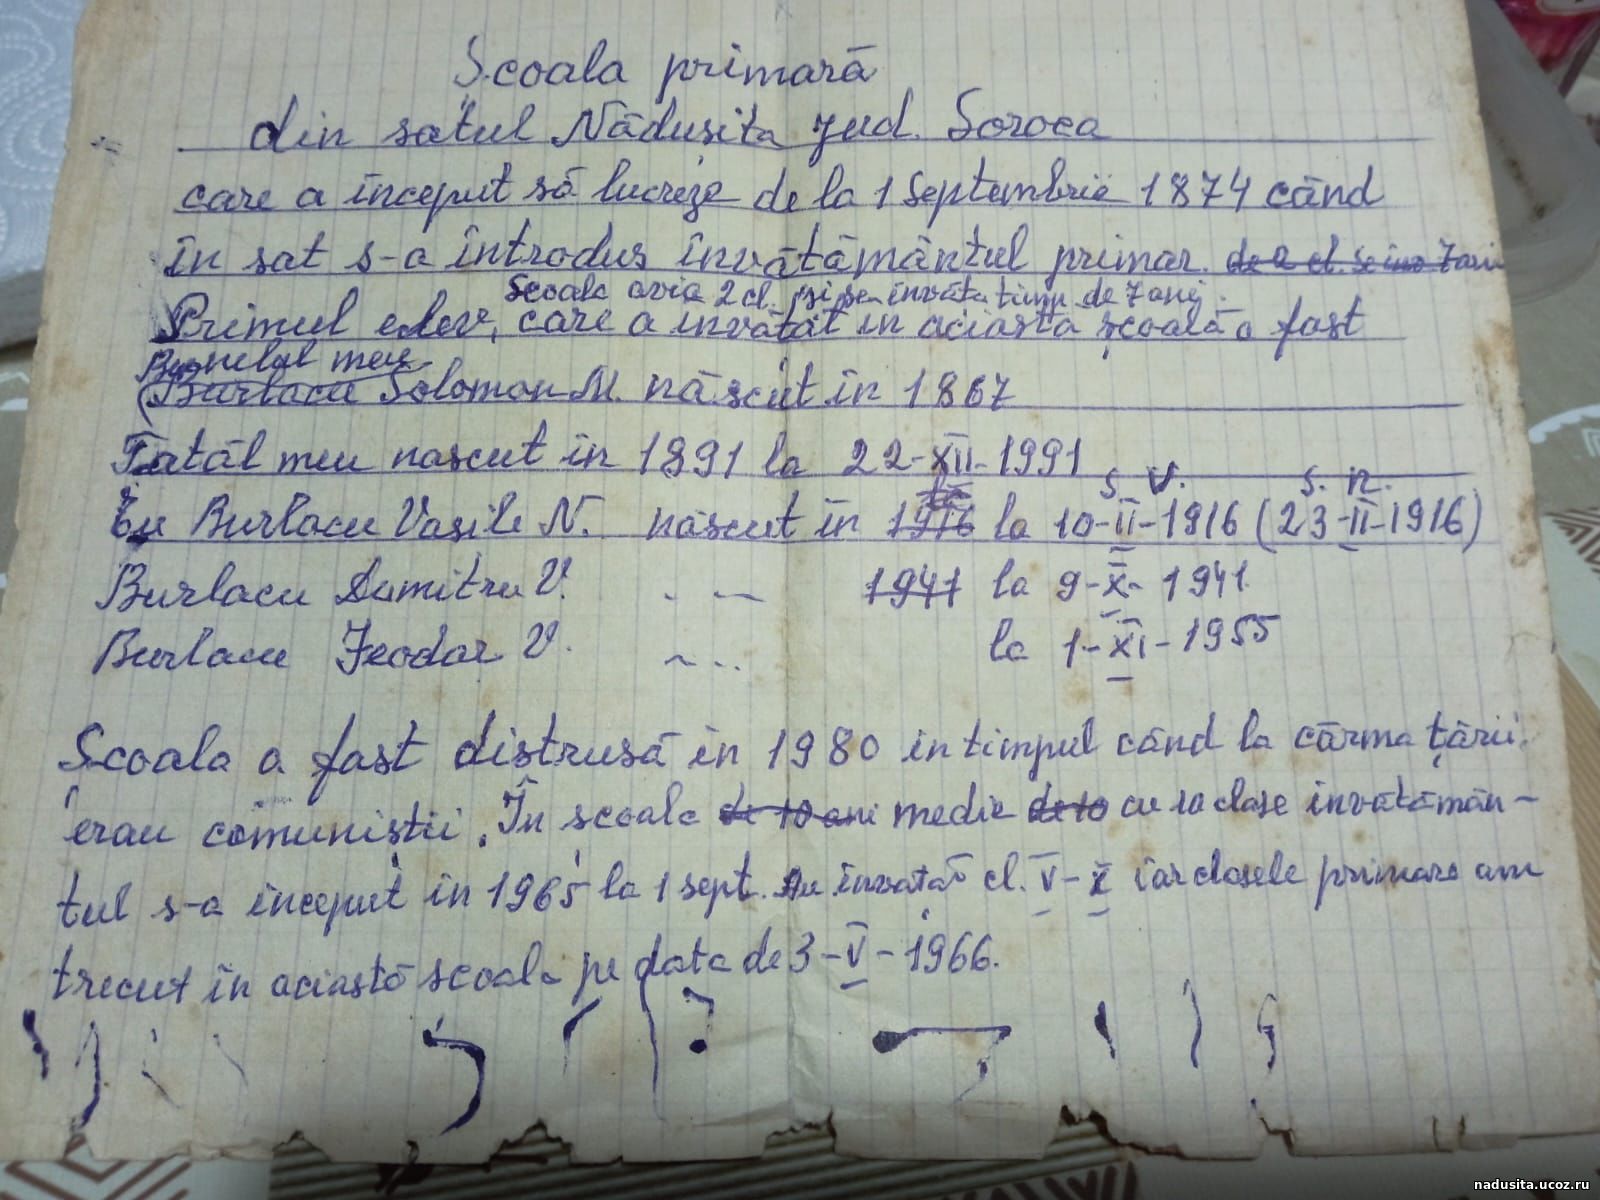 Școala primară
din satul Nădușita jud. Soroca
care a început să lucreze de la 1 Septembrie 1874 când
în sat s-a întrodus învătământul primar. de 2 cl. 7 ani
Scoala avia 2 cl. și se învăta timp de 7 ani.
Primul elev, care a învătăt in aciastă școală a fost
Bunelul meu
(Burlacu Solomon M. născut în 1867
Tatăl meu nascut în 1891 la 22-XII-1991
s. v. s. n.
Eu Burlacu Vasile N. născut în 1916 la 10-II-1916 (23-II-1916)
Burlacu Dumitru V. 1941 la 9-X-1941
Burlacu Feodor V. la 1-XI-1955
Școala a fost distrusă în 1980 in timpul când la cârma țării
erau comuniștii. În școala de 10 ani medie de 10 cu 10 clase învătămân-
tul s-a început în 1965 la 1 sept. Au învatat cl. V-X iar clasele primare am
trecut în aciastă scoala pe data de 3-V-1966.
nadusita.ucoz.ru